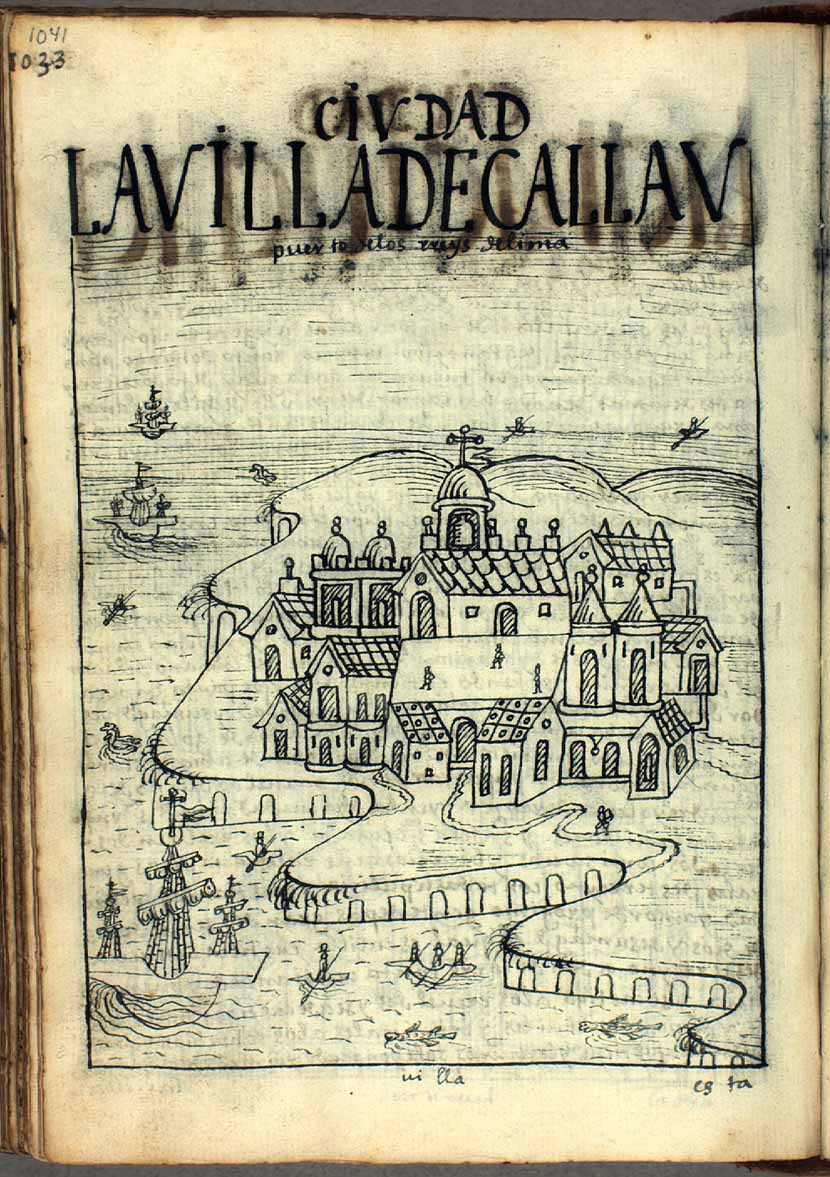 1041
1033
CIVDAD
LAVILLADECALLAV
puerto delos rreys delima
villa
esta